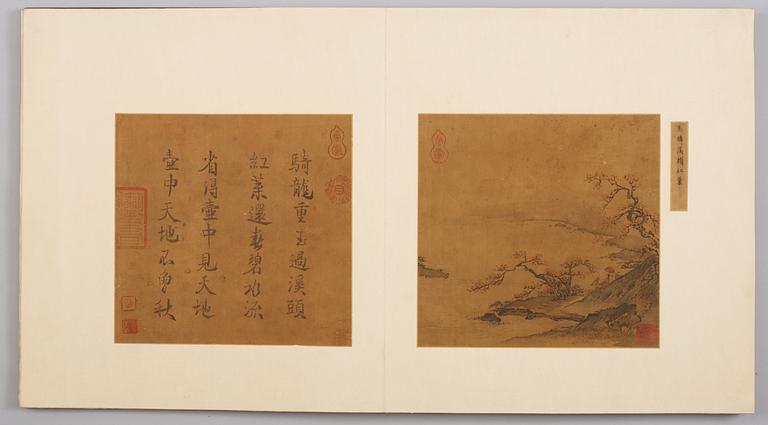 紅葉
騎龍重玉過溪頭
紅葉還春碧水流
省得壺中見天地
壺中天地不曾秋